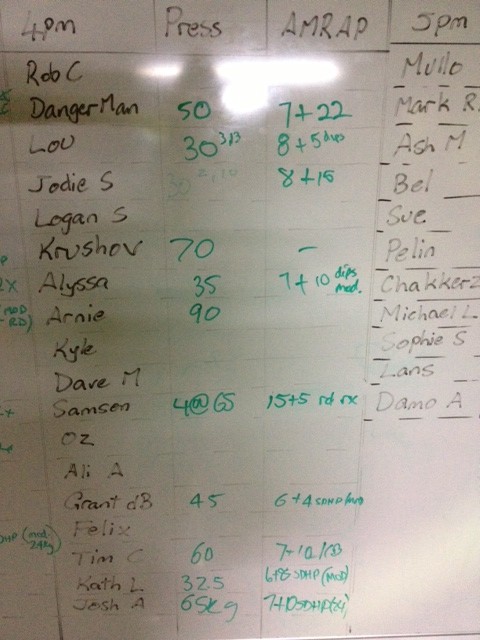 4pm Press AMRAP 5pm
Rob C Mullo
DangerMan 50 7+22 Mark R.
Lou 30 3/3 8+5 dips Ash M
Jodie S 30 8+15 Bel
Logan S Sue
Krushov 70 - Pelin
Alyssa 35 7+10 dips mod. Chakkerz
Arnie 90 Michael L
Kyle Sophie S
Dave M Lans
Samson 4@65 15+5 rd rx Damo A
Oz
Ali A
Grant dB 45 6+4 SDHP
Felix
Tim C 60
Kath L 32.5 SDHP (mod)
Josh A 65kg